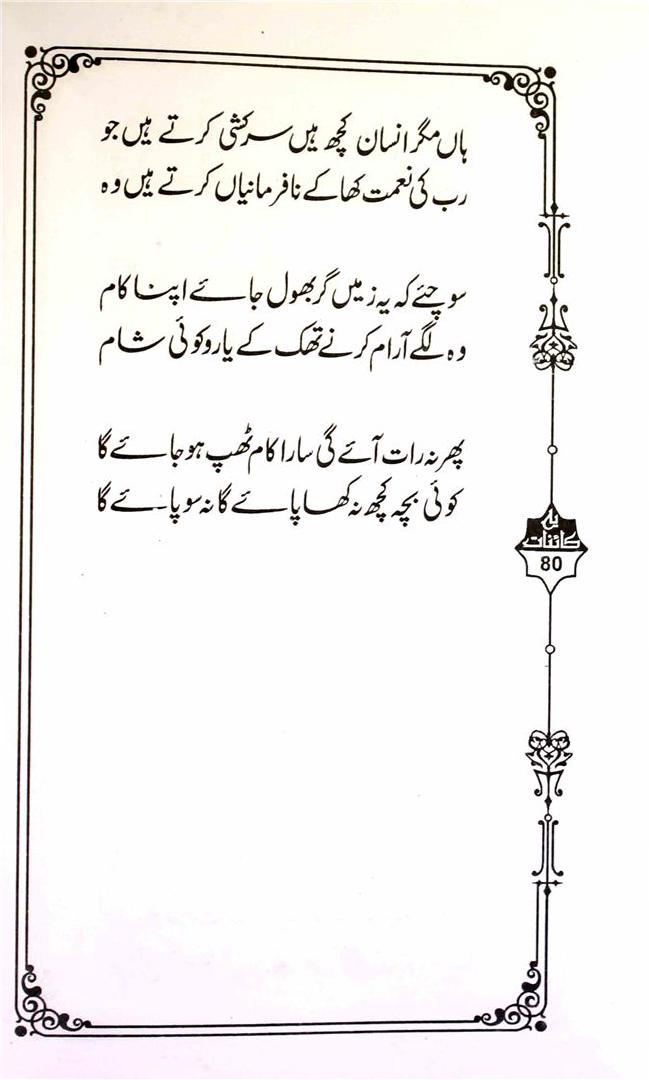 ہاں مگر انسان کچھ ہیں سرکشی کرتے ہیں جو
رب کی نعمت کھا کے نافرمانیاں کرتے ہیں وہ
سوچئے کہ یہ زمیں گر بھول جائے اپنا کام
وہ لگے آرام کرنے تھک کے یارو کوئی شام
پھر نہ رات آئے گی سارا کام ٹھپ ہو جائے گا
کوئی بچہ کچھ نہ کھا پائے گا نہ سو پائے گا
یہ
کائنات
80